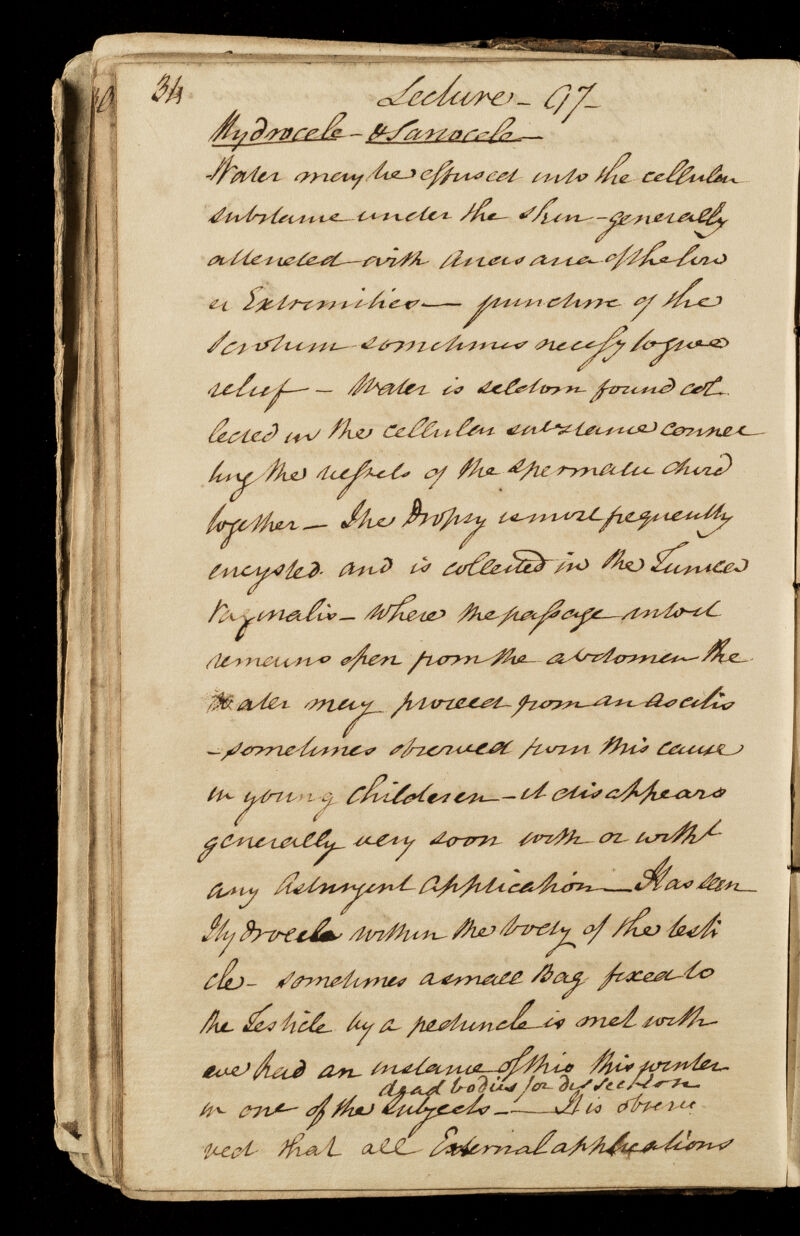 34
Lecture - 97 -
Hydrocele - & Sarcocele -
Water may be effused into the cellular
substance under the skin - generally
attended with Anasarca of the low
er Extremities — puncture of the
Scrotum sometimes necessy to give
relief - Water is seldom found col
lected in the cellular substance connec
ting the vessels of the spermatic chord
together — The Dropsy is most frequently
encysted and is collected in the Tunica
Vaginalis - Where the passage into it
remains open from the abdomen the
Water may proceed from an Ascitis
- sometimes observed from this cause
in young Childeren - it disappears
generally very soon with or witht
any Astringent Application — Has seen
Hydrocele within the body of the testi
cle - sometimes a small Bag fixed to
the Testicle by a peduncle is met with
we had an instance of this this winter
dead bodies for dissection
in one of the Subjects — It is obser
ved that all External applications